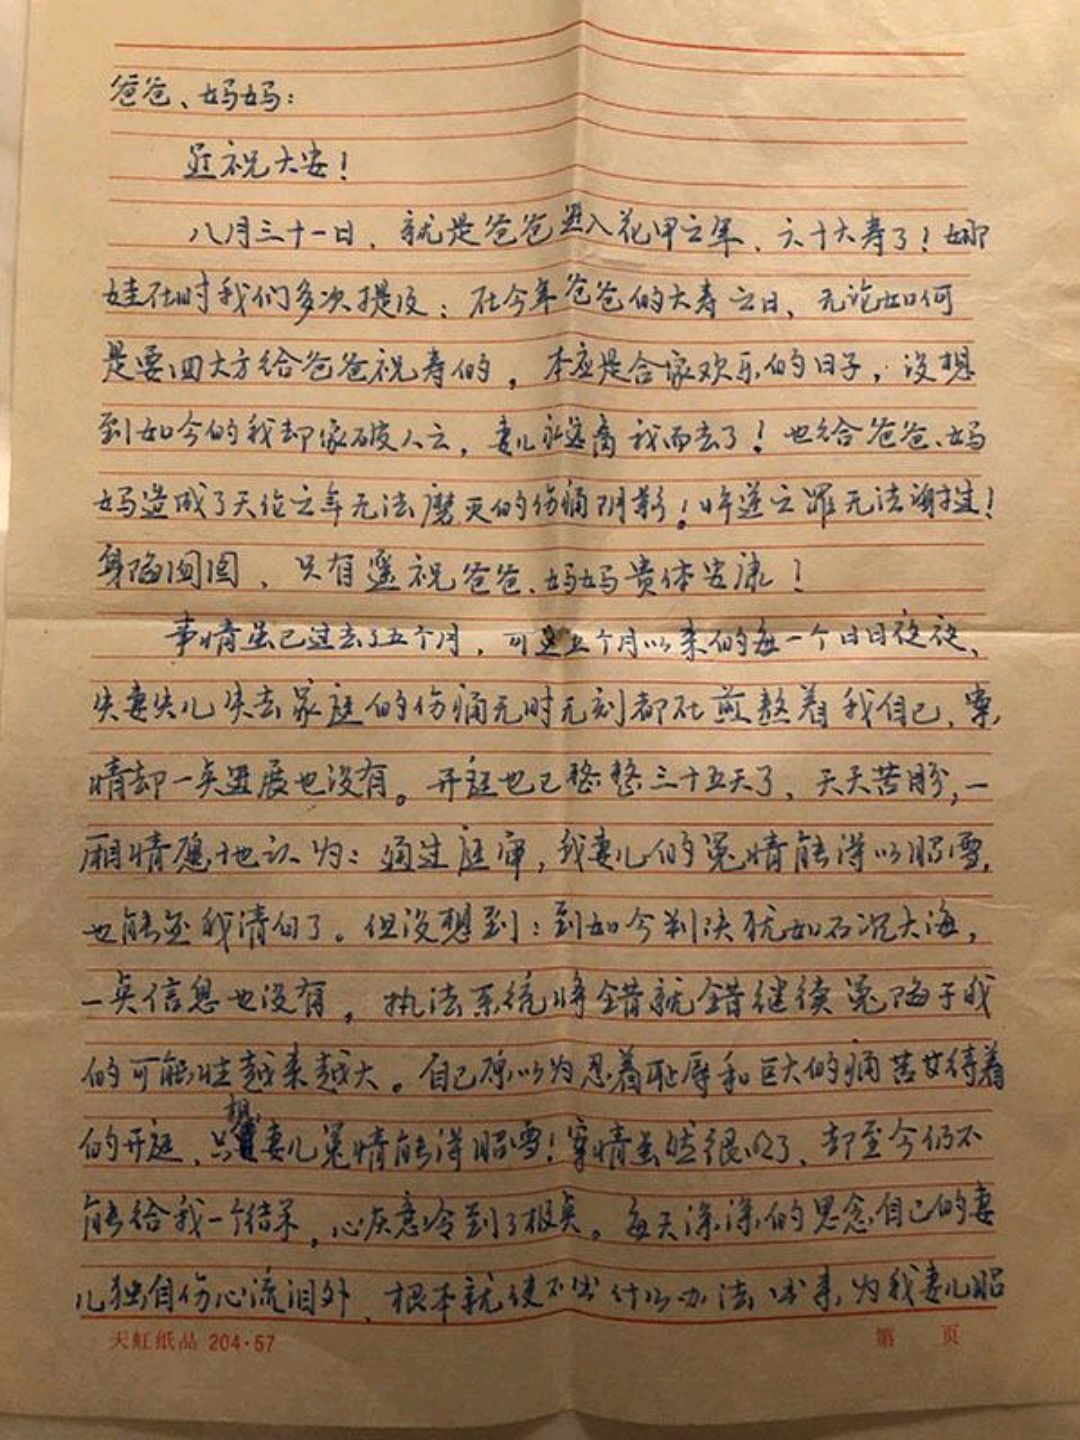 爸爸、妈妈：
遥祝大安！
八月三十一日，就是爸爸进入花甲之年、六十大寿了！娜
娃在时我们多次提及：在今年爸爸的大寿之日、无论如何
是要回大方给爸爸祝寿的，本应是合家欢乐的日子，没想
到如今的我却家破人亡，妻儿永远离我而去了！也给爸爸、妈
妈造成了天伦之年无法磨灭的伤痛阴影！忤逆之罪无法谢过！
身陷囹圄、只有遥祝爸爸、妈妈贵体安康！
事情虽已过去了五个月，可这五个月以来的每一个日日夜夜、
失妻失儿失去家庭的伤痛无时无刻都在煎熬着我自己、案
情却一点进展也没有。开庭也已整整三十五天了、天天苦盼，一
厢情愿地认为：通过庭审，我妻儿的冤情能得以昭雪，
也能还我清白了。但没想到：到如今判决犹如石沉大海，
一点信息也没有，执法系统将错就错继续冤陷于我
的可能性越来越大。自己原以为忍着耻辱和巨大的痛苦等待着
的开庭、只想妻儿冤情能得昭雪！案情虽然很明了、却至今仍不
能给我一个结果，心灰意冷到了极点。每天深深的思念自己的妻
儿独自伤心流泪外、根本就使不出什么办法出来，为我妻儿昭
天虹纸品 204·57
第 页